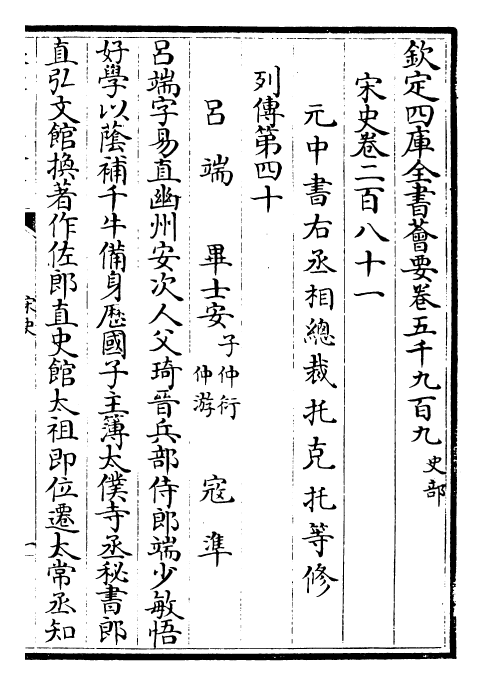 欽定四庫全書薈要卷五千九百九 史部
宋史卷二百八十一
元中書右丞相總裁托克托等修
列傳第四十
呂端 畢士安 子仲衍 仲游 寇準
呂端字易直幽州安次人父琦晉兵部侍郎端少敏悟
好學以蔭補千牛備身歷國子主簿太僕寺丞秘書郎
直弘文館換著作佐郎直史館太祖即位遷太常丞知
宋史